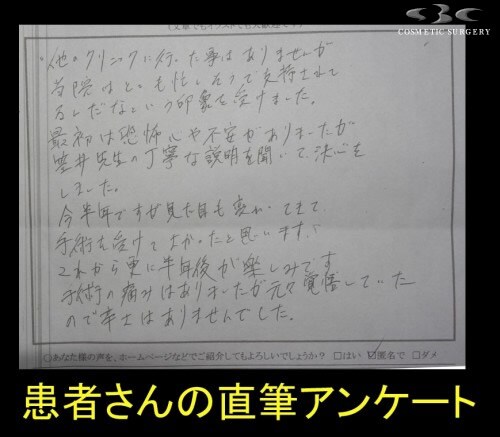 CBC
COSMETIC SURGERY
他のクリニックに行った事はありませんが
当院はとても忙しそうで支持されて
るんだなという印象を受けました。
最初は恐怖心や不安がありましたが
先生の丁寧な説明を聞いて、決心を
しました。
今半年ですが見た目も変わってきて、
手術を受けてよかったと思います。
これから更に半年後が楽しみです
手術の痛みはありましたが元々覚悟していた
ので辛さはありませんでした。
○あなた様の声を、ホームページなどでご紹介してもよろしいでしょうか? □はい ☑匿名で □ダメ
患者さんの直筆アンケート